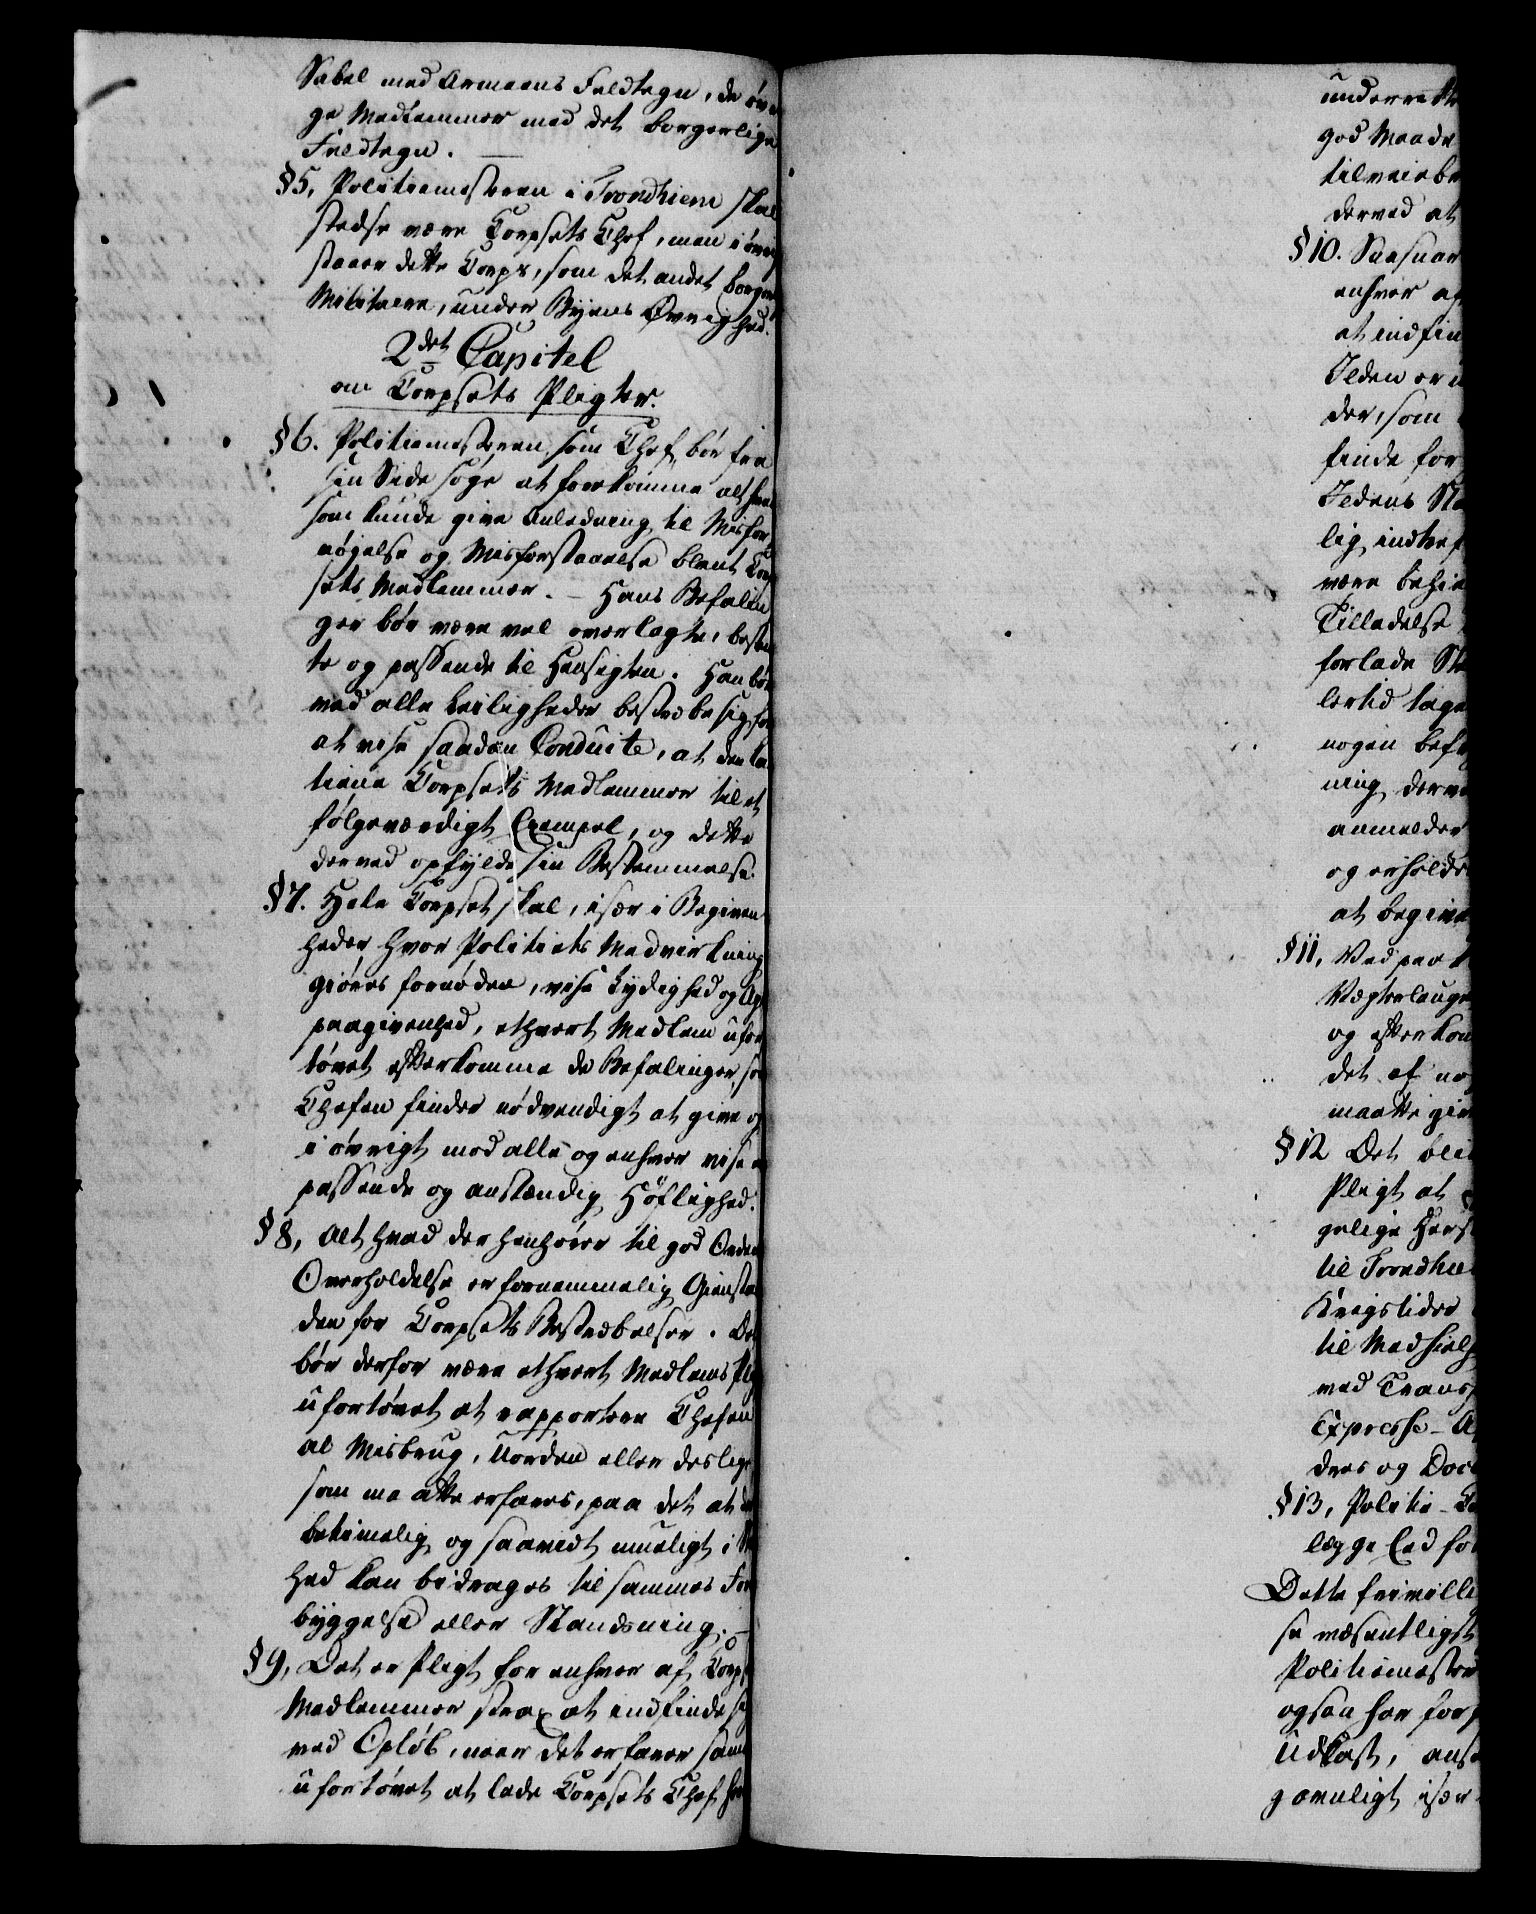 Sabel med Armeens Feldtegn, de øv
ge Medlemmer med det borgerlige
Feldtegn.
§5, Politiemesteren i Trondhiem skal
stedse være Corpsets Chef, men i øvrig
staaer dette Corps, som det andet borger
Militaire, under Byens Øvrighed.
2det Capitel
om Corpsets Pligter.
§6. Politiemesteren som Chef bør fra
sin Side søge at forekomme alt hvad
som kunde give Anledning til Misfor
nøgelse og Misforstaaelse blant Corp
sets Medlemmer. - Hans Befalin
ger bør være vel overlagte, bestem
te og passende til Hensigten. Han bør
ved alle Leiligheder bestræbe sig for
at vise saadan Conduite, at den kan
tiene Corpsets Medlemmer til et
følgeværdigt Exempel, og dette
derved opfylde sin Bestemmelse.
§7. Hele Corpset skal, især i Begiven
heder hvor Politiets Medvirkning
giøres fornøden, vise Lydighed og Aar
paagivenhed, ethvert Medlem ufor
tøvet efterkomme de Befalinger, som
Chefen finder nødvendigt at give og
i øvrigt mod alle og enhver vise en
passende og anstændig Høflighed.
§8, Alt hvad der henhører til god Orden
Overholdelse er fornemmelig Giensta
den for Corpsets Bestræbelser. Det
bør derfor være ethvert Medlems Pligt
ufortøvet at rapportere Chefen
al Misbrug, Uorden eller deslige
som maatte erfares, paa det at der
betimelig og saavidt mueligt i
hed kan bidrages til sammes For
byggelse eller Standsning. -
§9, Det er Pligt for enhver af Corps
Medlemmer strax at indfinde sig
ved Opløb, naar det erfarer samt
ufortøvet at lade Corpsets Chef
underrette
god Maade
tilveiebr
derved at
§10. Saasnar
enhver af
at indfin
Ilden er
der, som
finde for
Ildens St
lig indtref
være behie
Tilladelse
forlade St
lertid tage
nogen Bef
ning derve
anmelder
og erholde
at begive
§11, Ved paa
Vægterlauge
og efterkom
det af no
maatte giv
§12 Det bli
Pligt at
gelige Hers
til Trondhie
Krigstider
til Medhielp
ved Transp
Expresse-
dres og Doc
§13, Politie-
lægge Eed for
Dette frivillig
se væsentligst
Politiemester
ogsaa har for
Udkast, anse
gavnligt især